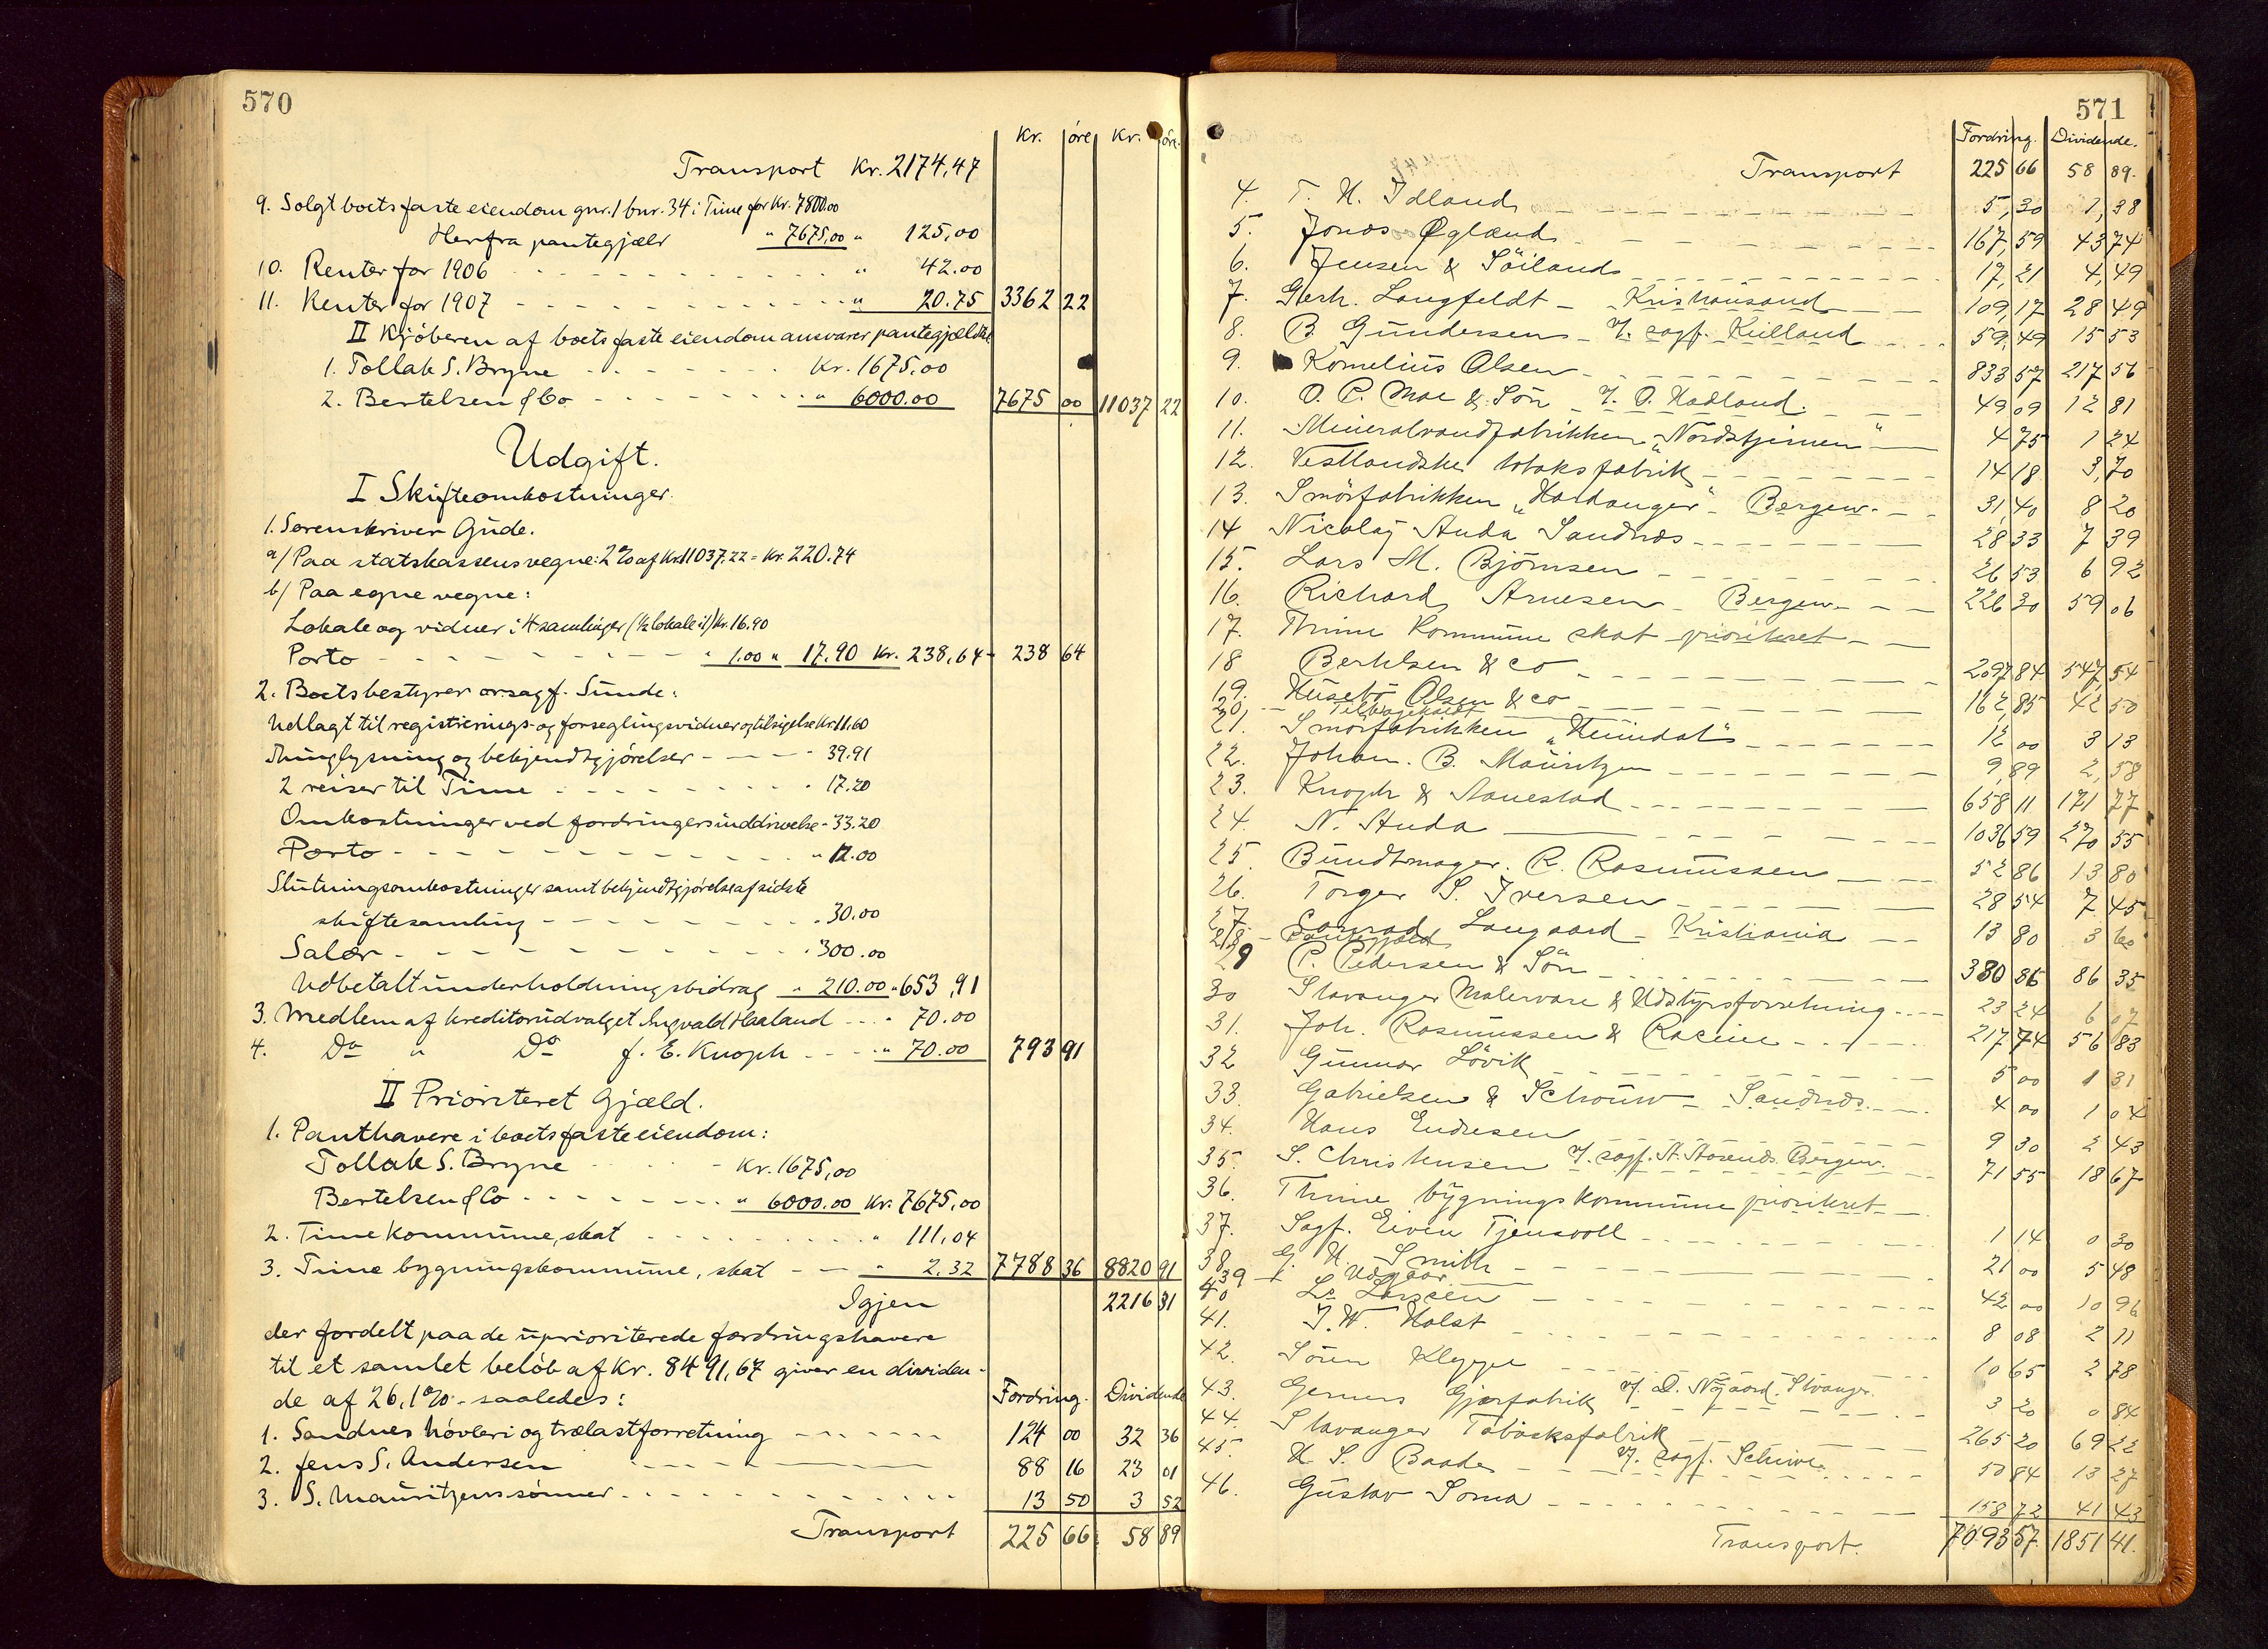 570
Kr. øre Kr. øre.
Transport Kr. 2174,47
9. Solgt boets faste eiendom gnr. 1 bnr. 34 i Time for Kr. 7800.00
Herfra pantegjæld " 7675,00 " 125,00
10. Renter for 1906 - - - " 42.00
11. Renter for 1907 - - - " 20.75 3362 22
II Kjøberen af boets faste eiendom ansvarer pantegjælden
1. Tollak S. Bryne - - - Kr. 1675,00
2. Bertelsen & Co - - - " 6000.00 7675 00 11037 22
Udgift.
I Skifteomkostninger.
1. Sorenskriver Gude.
a/ Paa statskassens vegne: 2% af Kr. 11037.22 = Kr. 220.74
b/ Paa egne vegne:
Lokale og vidner i 4 samlinger (½ lokale i 1) Kr. 16.90
Porto - - - " 1.00 " 17.90 Kr. 238,64 - 238 64
2. Boets bestyrer o.r.sagf. Sunde:
Udlagt til registrerings- og forseglingsvidner og tilsigelse Kr. 11.60
Thinglysning og bekjendtgjørelser - - - 39.91
2 reiser til Time - - - 17.20
Omkostninger ved fordringers inddrivelse - 33.20
Porto - - - " 12.00
Slutningsomkostninger samt bekjendtgjørelse af sidste
skiftesamling - - - 30.00
Salær - - - 300.00
Udbetalt underholdningsbidrag " 210.00 " 653,91
3. Medlem af kreditorudvalget Ingvald Haaland - - - 70.00
4. Do " Do J. E. Knoph - - - " 70.00 793 91
II Prioriteret Gjæld.
1. Panthavere i boets faste eiendom:
Tollak S. Bryne - - - Kr. 1675,00
Bertelsen & Co - - - " 6000.00 Kr. 7675,00
2. Time kommune, skat - - - " 111,04
3. Time bygningskommune, skat - - - " 2.32 7788 36 8820 91
Igjen 2216 31
der fordelt paa de uprioriterede fordringshavere
til et samlet beløb af Kr. 8491,67 giver en dividen-
de af 26,1% - saaledes: Fordring. Dividende
1. Sandnes høvleri og trælastforretning - - - 124 00 32 36
2. Jens S. Andersen - - - 88 16 23 01
3. S. Mauritzens sønner - - - 13 50 3 52
Transport 225 66 58 89
571
Fordring. Dividende.
Transport 225 66 58 89.
4. T. H. Idland - - - 5,30 1,38
5. Jonas Øgland - - - 167,59 43 74
6. Jensen & Söiland - - - 17,21 4,49
7. Gerh. Langfeldt - Kristiansand - - - 109,17 28 49
8. B. Gundersen - v. sagf. Kielland - - - 59,49 15 53
9. Kornelius Olsen - - - 833 57 217 56
10. O. C. Moe & Sön - v. O. Hadland. - - - 49 09 12 81
11. Mineralvandfabrikken „Nordstjernen" - 4 75 1 24
12. Vestlandske tobaksfabrik - - - 14 18 3,70
13. Smörfabrikken „Hardanger" - Bergen. - - 31,40 8 20
14 Nicolaj Auda Sandnæs - - - 28 33 7 39
15. Lars M. Björnsen - - - 26 53 6 92
16. Richard Arnesen - Bergen - - - 226 30 59 06
17. Thime Kommune skat prioriteret - -
18 Bertelsen & co - - - 2097 84 547 54
19. Husebö Olsen & co - - - 162,85 42 50
20, - Tilbagekaldt
21. Smörfabrikken „Heimdal" - - - 12 00 3 13
22. Johan. B. Mauritzen - - - 9,89 2,58
23. Knoph & Aanestad - - - 658 11 171 77
24. N. Auda - - - 1036 59 270 55
25 Bundtmager. R. Rasmussen - - - 52 86 13 80
26. Torger S. Iversen - - - 28 54 7 45
27. Conrad Langaard - Kristiania - - 13 80 3 60
28 - Pantegjæld
29 P. Pedersen & Sön - - - 330 86 86 35
30 Stavanger Malervare & Udstyrsforretning - - - 23 24 6 07
31. Joh. Rasmussen & Racine - - - 217 74 56 83
32 Gunnar Lövik - - - 5 00 1 31
33. Gabrielsen & Schouw - Sandnæs. - - 4 00 1 04
34. Hans Endresen - - - 9 30 2 43
35. S. Christensen v. sagf. A. Aasend. Bergen. 71 55 18 67
36. Thime bygningskommune prioriteret -
37. Sagf. Eivin Tjensvoll - - - 1 14 0 30
38. G. H. Smith - - - 21 00 5 48
39 - Udgaar
40 L. Larsen - - - 42 00 10 96
41. J. W. Holst - - - 8 08 2 11
42. Sören Kleppe - - - 10 65 2 78
43. Gerners Gjærfabrik v. O. Nygaard. Stvanger. 3 20 0 84
44. Stavanger Tobaksfabrik - - - 265 20 69 22
45. H. S. Baade - v. sagf. Schiwe. - - - 50 84 13 27
46. Gustav Soma - - - 158 72 41 43
Transport. 7093 57. 1851 41.